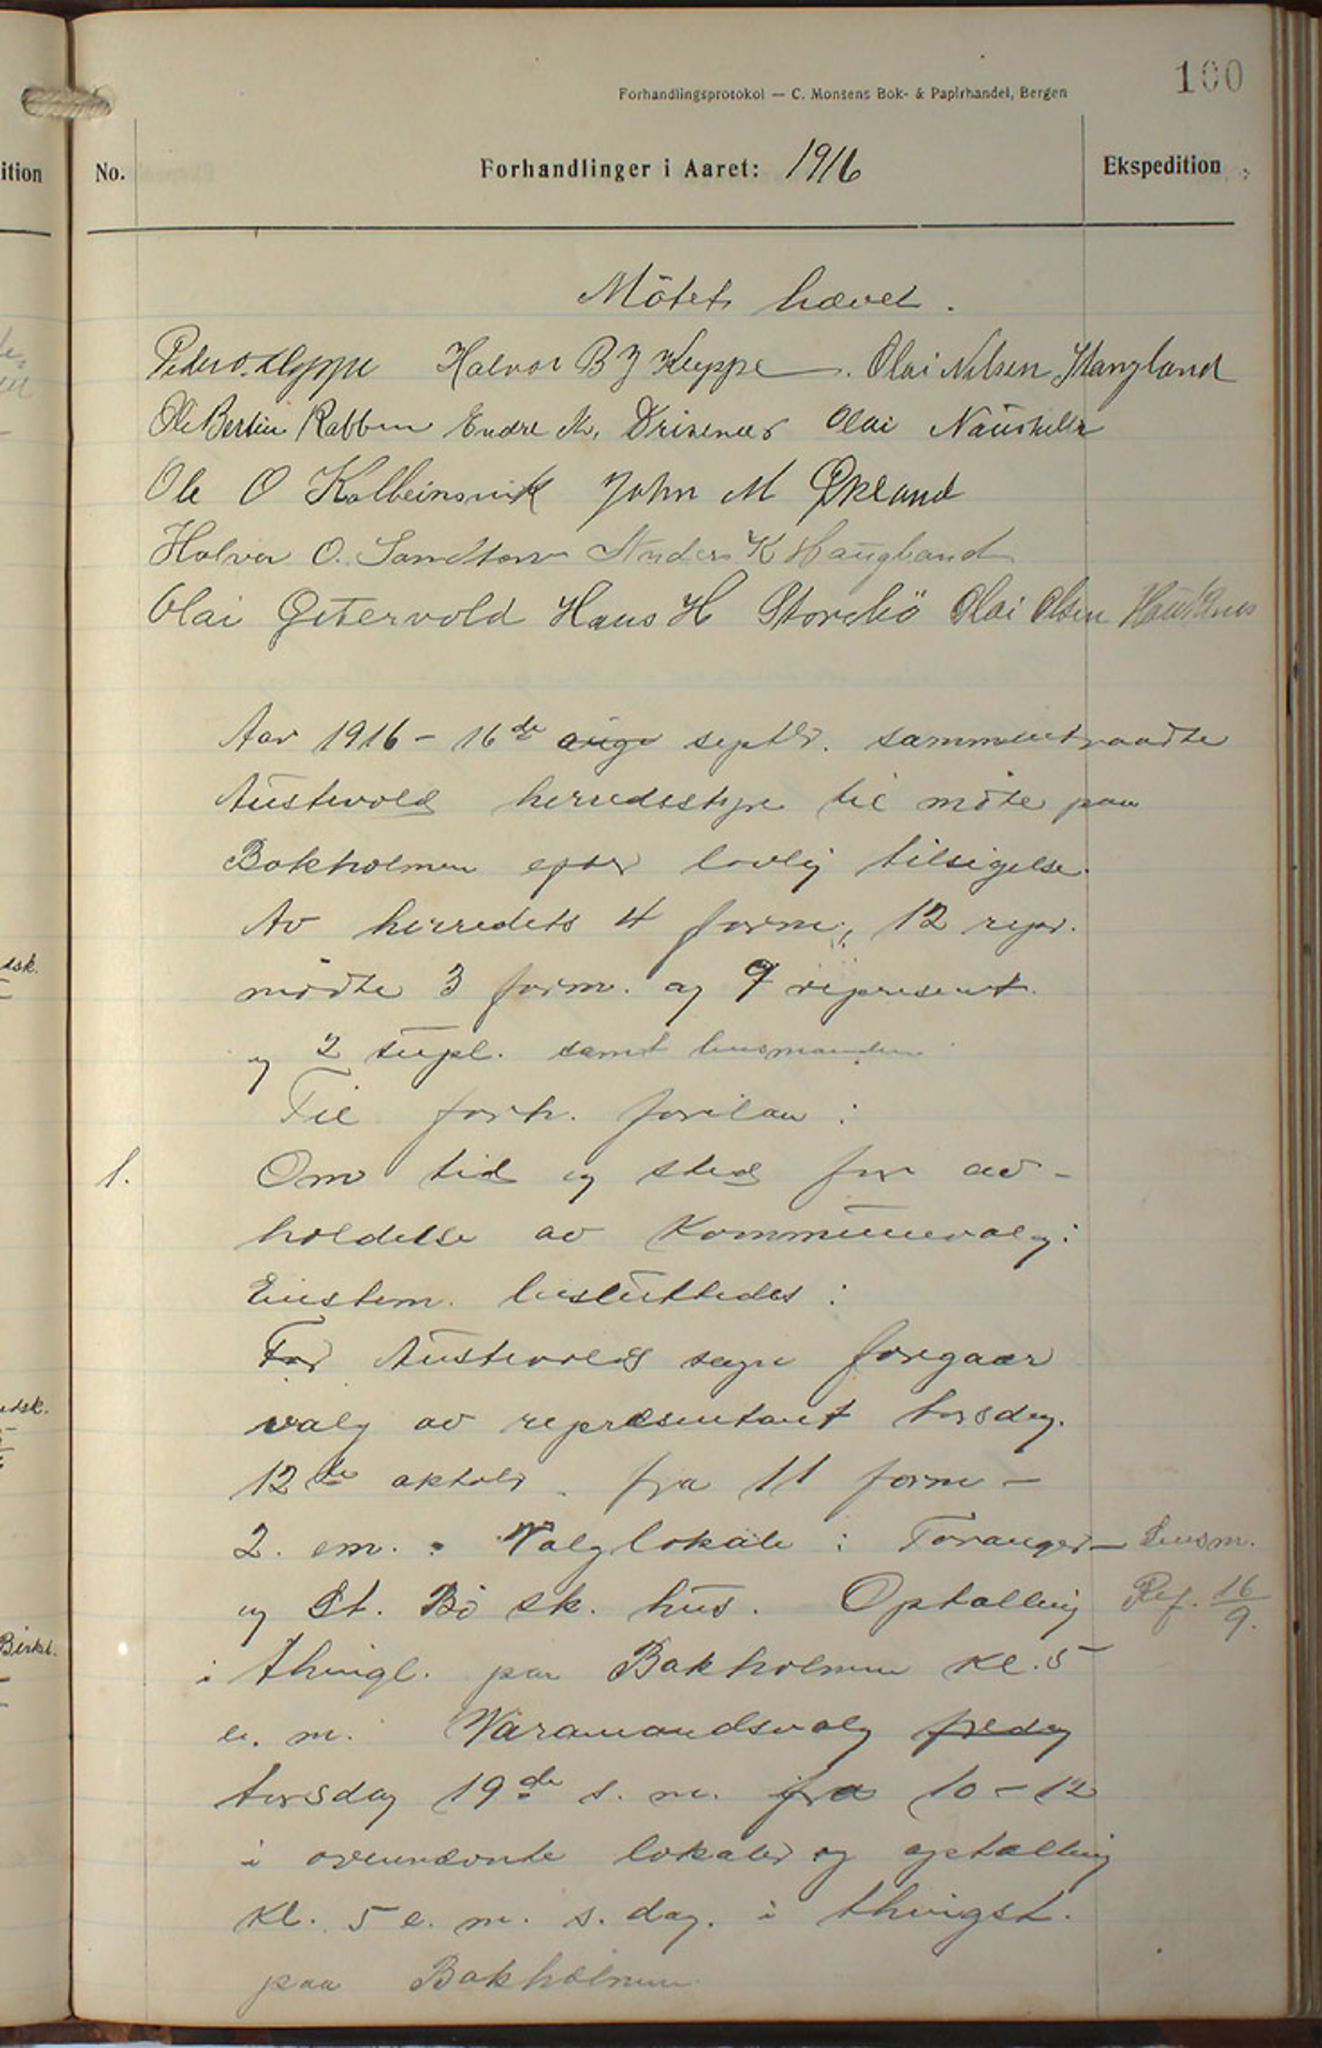 100
Forhandlingsprotokol — C. Monsens Bok- & Papirhandel, Bergen
ition
No.
Forhandlinger i Aaret: 1916
Ekspedition
Mötet hævet.
Peder O. Kleppe Halvor B J Kleppe. Olai Nilsen Stangland
Ole Bertin Rabben Endre M. Drivenes Olai
Ole O Kolbeinsvik John M Økland
Halvor O. Sandtorv Anders K Haugland
Olai Østervold Hans H Storebö Olai Olsen
Aar 1916 - 16de septbr. sammentraadte
Austevold herredsstyre til möte paa
Bakholmen efter lovlig tilsigelse.
Av herredets 4 form., 12 repr.
dsk.
mödte 3 form. og 9 represent.
og 2 supl. samt lensmanden.
Til forh. forelaa:
1. Om tid og sted for av-
holdelse av Kommunevalg:
Einstem. besluttedes:
For Austevold sogn foregaar
valg av representant torsdag.
12te oktobr. fra 11 form -
2. em. Valglokale: Toranger- Lensm.
og St. Bö sk. hus. Optælling Ref. 16/9.
Birkel.
i thingl. paa Bakholmen kl. 5
e. m. Varamandsvalg fredag
torsdag 19de s. m. fra 10 - 12
i ovennævnte lokaler og optælling
kl. 5 e. m. s. dag. i thingst.
paa Bakholmen